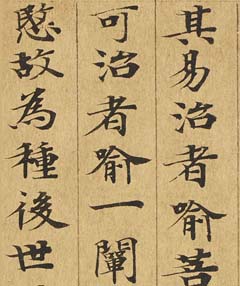 其易治者喻菩
可治者喻一闡
愍故為種後世